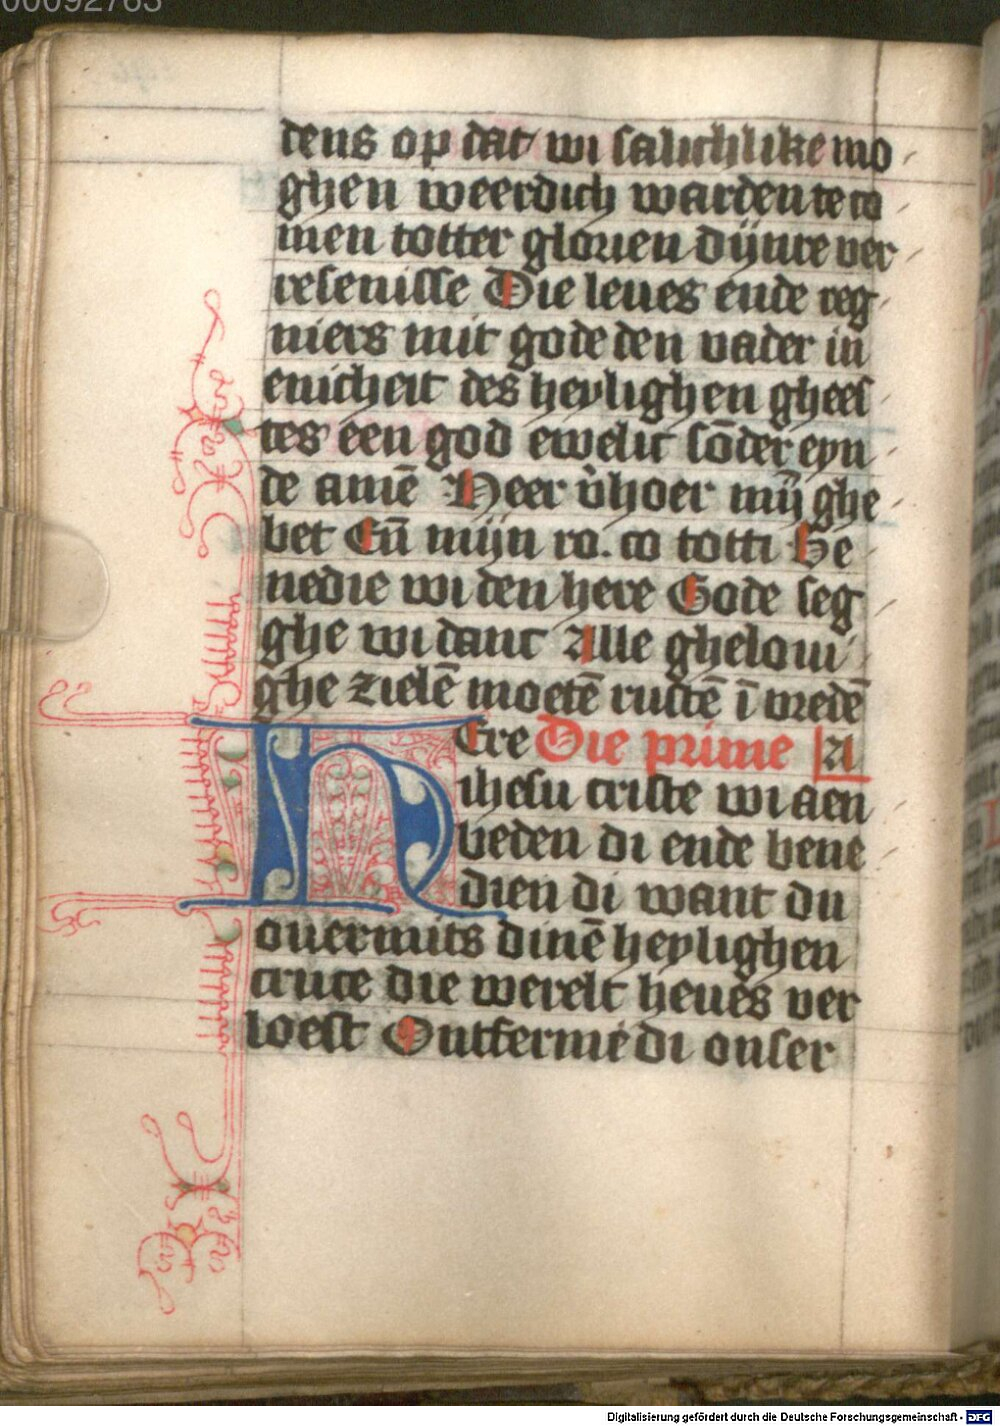 00092763
dens op dat wi salichlike mo
ghen weerdich warden te co
men totter glorien dijnre ver
resenisse Die leues ende reg
niers mit gode den vader in
enicheit des heylighen ghees
tes een god ewelic sōder eyn
de amē Heer v̓hoer mij̄ ghe
bet Eūn mijn ro. co totti Be
nedie wi den here Gode seg
ghe wi danc Alle gheloui
ghe zielē moetē rustē ī vredē
HEre Die prime A
ihesu criste wi aen
beden di ende bene
dien di want du
ouermits dinē heylighen
cruce die werelt heues ver
loest Ontferme di onser
Digitalisierung gefördert durch die Deutsche Forschungsgemeinschaft - DFG